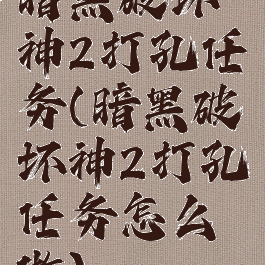 暗黑破坏
神2打孔任
务(暗黑破
坏神2打孔
任务怎么